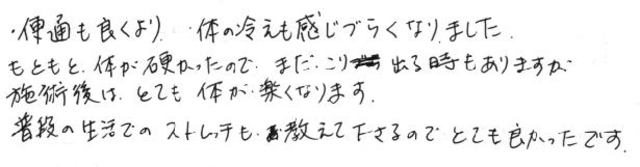 ・便通も良くより、・体の冷えも感じづらくなりました。
もともと、体が硬かったので、まだ、こり出る時もありますが
施術後は、とても体が楽くなります。
普段の生活でのストレッチも、教えて下さるのでとても良かったです。